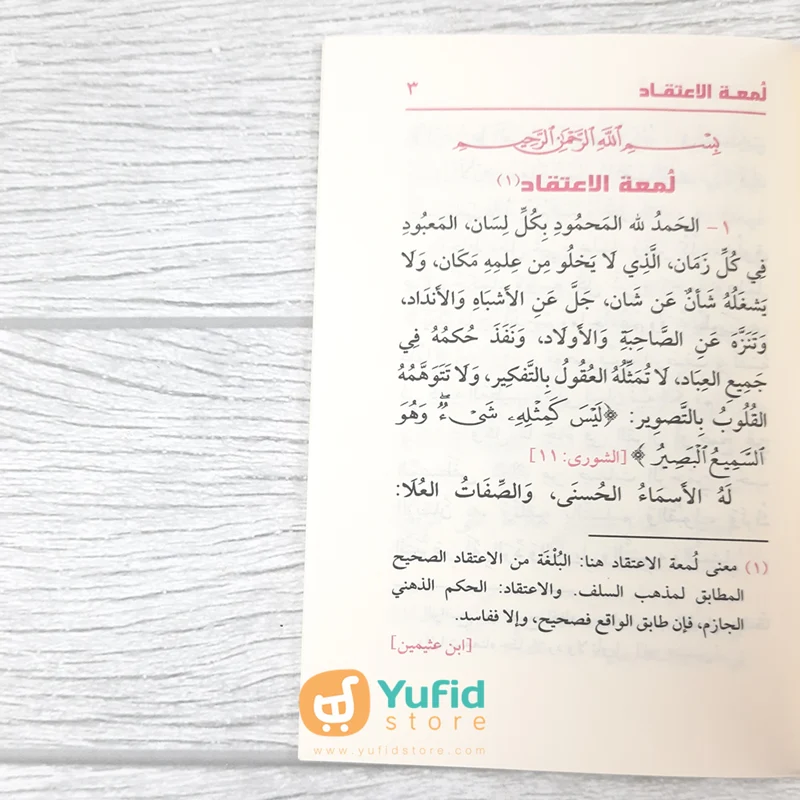 لُمعة الاعتقاد ٣
بِسْمِ اللَّهِ الرَّحْمَٰنِ الرَّحِيمِ
لُمعة الاعتقاد(١)
١- الحَمدُ لله المَحمُودِ بِكُلِّ لِسَان، المَعبُودِ
فِي كُلِّ زَمَان، الَّذِي لَا يَخلُو مِن عِلمِهِ مَكَان، وَلَا
يَشغَلُهُ شَأنٌ عَن شَان، جَلَّ عَنِ الأَشبَاهِ وَالأَندَاد،
وَتَنَزَّهَ عَنِ الصَّاحِبَةِ وَالأَولَاد، وَنَفَذَ حُكمُهُ فِي
جَمِيعِ العِبَاد، لَا تُمَثِّلُهُ العُقُولُ بِالتَّفكِير، وَلَا تَتَوَهَّمُهُ
القُلُوبُ بِالتَّصوِير: ﴿لَيْسَ كَمِثْلِهِۦ شَىْءٌۖ وَهُوَ
ٱلسَّمِيعُ ٱلْبَصِيرُ﴾ [الشورى: ١١]
لَهُ الأَسمَاءُ الحُسنَى، وَالصِّفَاتُ العُلَا:
(١) معنى لُمعة الاعتقاد هنا: البُلْغَة من الاعتقاد الصحيح
المطابق لمذهب السلف. والاعتقاد: الحكم الذهني
الجازم، فإن طابق الواقع فصحيح، وإلا ففاسد.
[ابن عثيمين]
Yufid
store
www.yufidstore.com